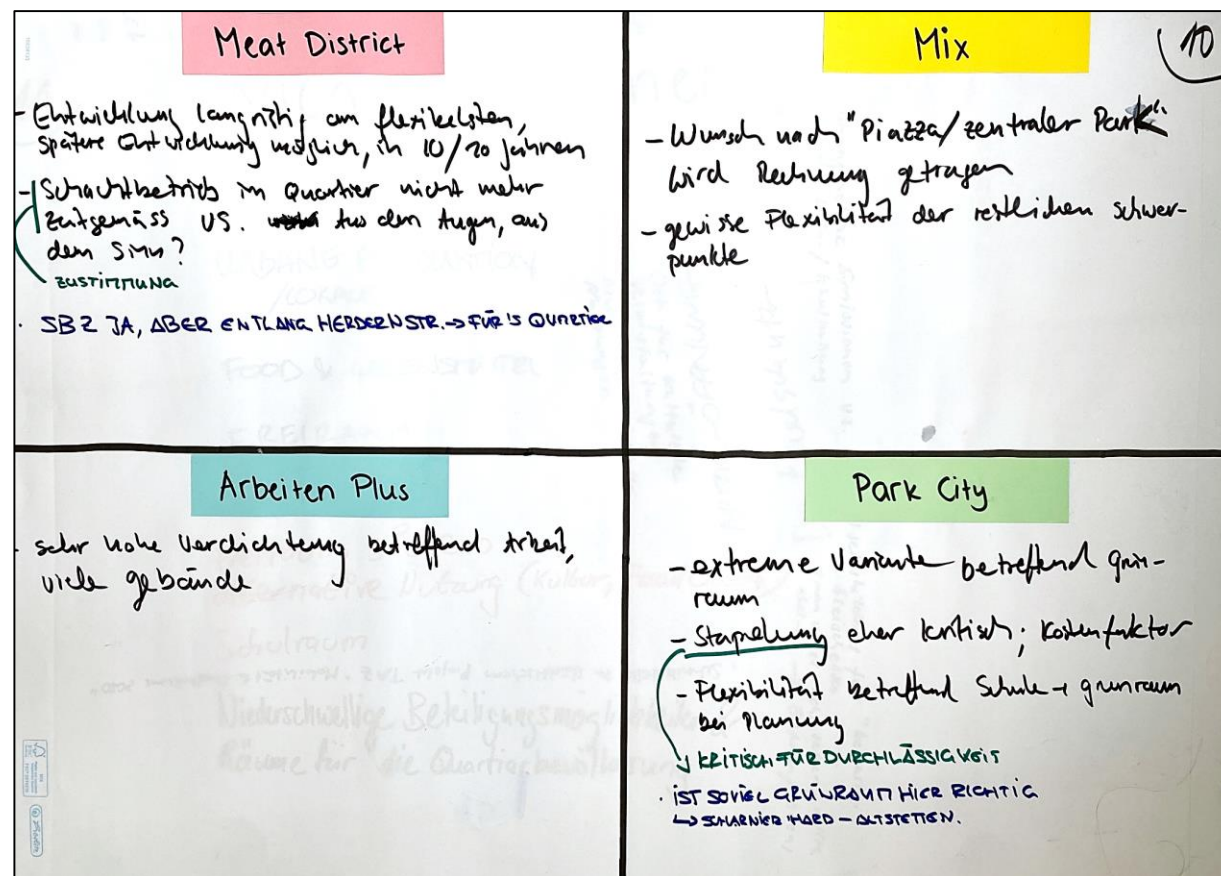 Meat District
- Entwicklung langfristig am flexibelsten,
spätere Entwicklung möglich, in 10/20 Jahren
- Schachtbetrieb im Quartier nicht mehr
zeitgemäss vs. Aus den Augen, aus
dem Sinn?
ZUSTIMMUNG
· SBZ JA, ABER ENTLANG HERDERNSTR. → FÜR'S QUARTIER
Mix
10
- Wunsch nach "Piazza/zentraler Park"
wird Rechnung getragen
- gewisse Flexibilität der restlichen schwer-
punkte
Arbeiten Plus
- sehr hohe Verdichtung betreffend Arbeit,
viele gebäude
Park City
- extreme Variante betreffend grün-
raum
- Stapelung eher kritisch; Kostenfaktor
- Flexibilität betreffend Schule + grünraum
bei Planung
↓ KRITISCH FÜR DURCHLÄSSIGKEIT
· IST SOVIEL GRÜNRAUM HIER RICHTIG
↳ SCHARNIER HARD - ALTSTETTEN.